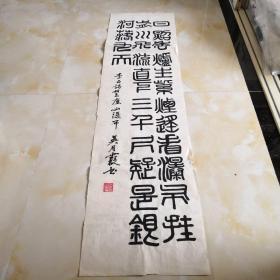 日照香爐生紫煙遙看瀑布挂
前川飛流直下三千尺疑是銀
河落九天
李白詩望庐山瀑布 吴月霞书